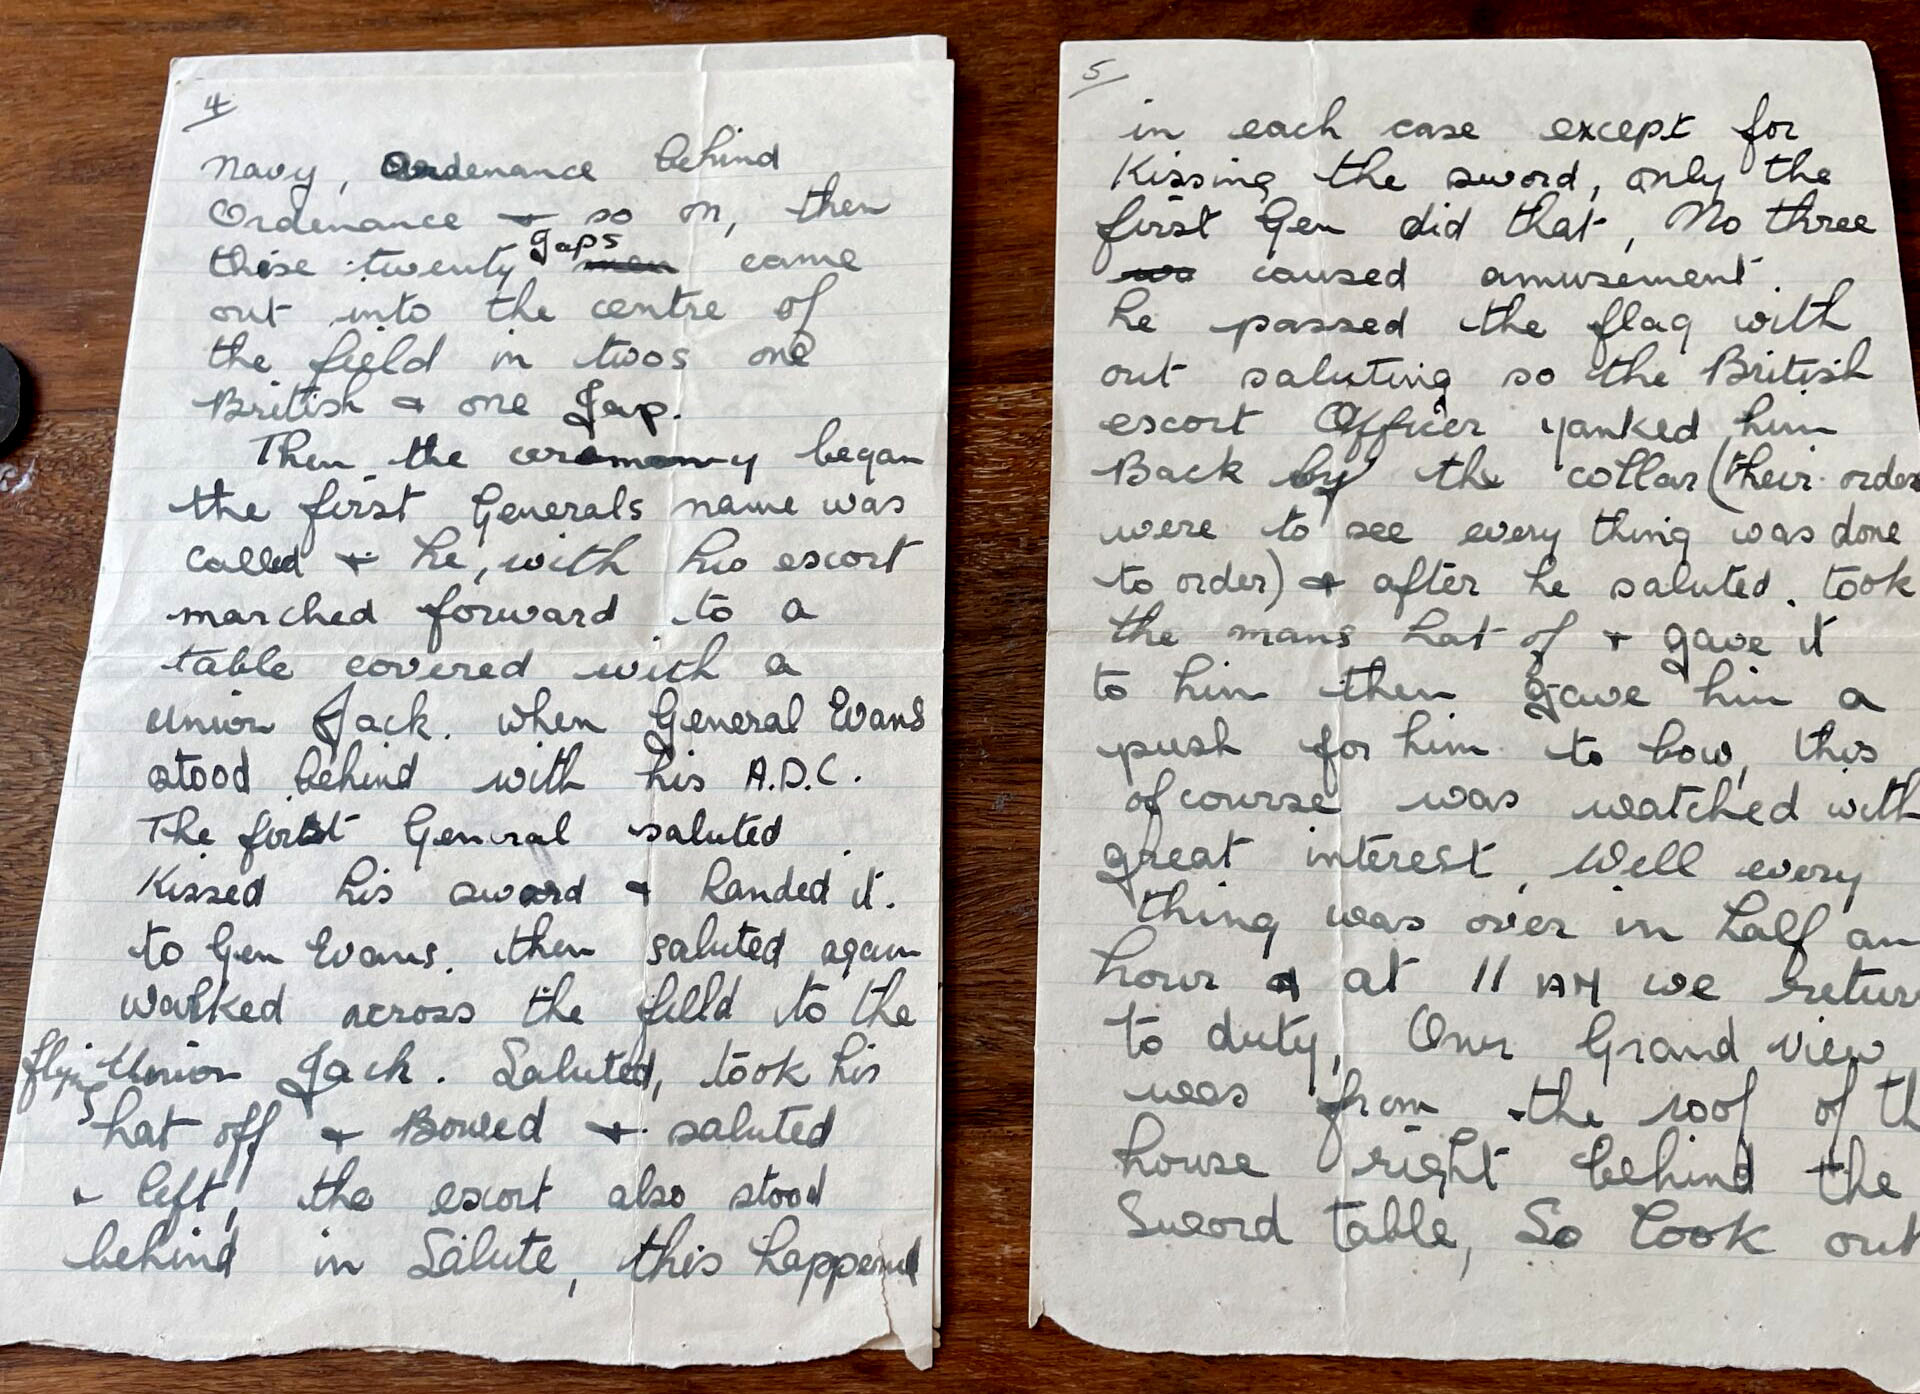 4
Navy, Ordenance behind
Ordenance + so on, then
these twenty Japs men came
out into the centre of
the field in twos one
British & one Jap.
Then the ceremony began
the first Generals name was
called + he, with his escort
marched forward to a
table covered with a
union Jack. when General Evans
stood behind with his A.D.C.
The first General saluted
Kissed his sword & handed it.
to Gen Evans. then saluted again
walked across the field to the
flying Union Jack. Saluted, took his
hat off + Bowed + saluted
& left, the escort also stood
behind in Salute, this happened
5
in each case except for
Kissing the sword, only the
first Gen did that, No three
wa caused amusement.
he passed the flag with
out saluting so the British
escort Officer yanked him
Back by the collar (their order
were to see every thing was done
to order) & after he saluted. took
the mans hat of + gave it
to him then gave him a
push for him to bow, this
of course was watched with
great interest, Well every
thing was over in half an
hour & at 11 AM we retur
to duty, Our Grand view
was from the roof of th
house right behind the
Sword table, So look out